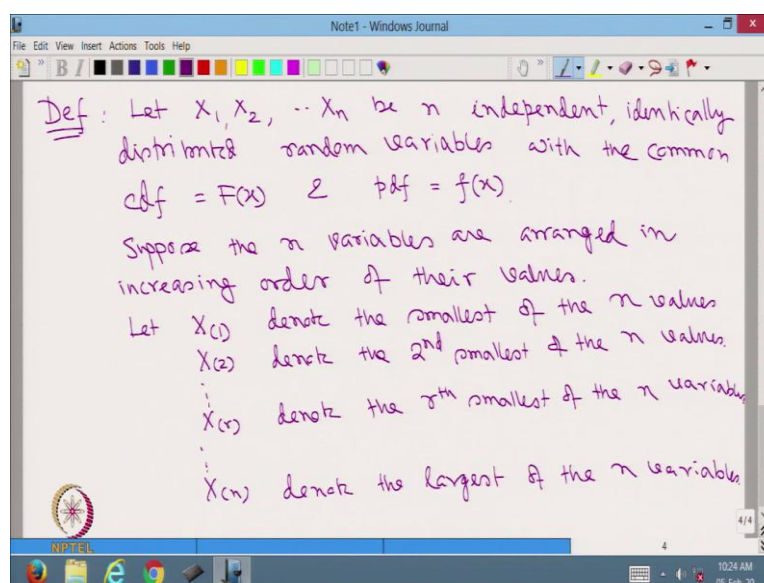 Note1 - Windows Journal
File Edit View Insert Actions Tools Help
B I
Def : Let X₁, X₂, .. Xn be n independent, identically
distributed random variables with the common
cdf = F(x) & pdf = f(x)
Suppose the n variables are arranged in
increasing order of their values.
Let X(1) denote the smallest of the n values
X(2) denote the 2nd smallest of the n values.
⋮
X(r) denote the rth smallest of the n variables
⋮
X(n) denote the largest of the n variables.
4/4
NPTEL
4
10:24 AM
05-Feb-20